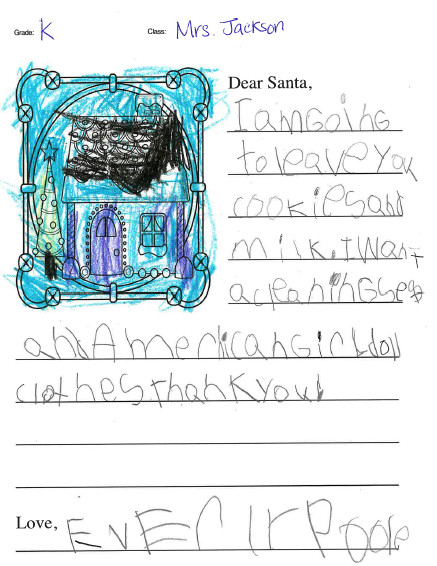 Grade: K Class: Mrs. Jackson
Dear Santa,
I am going
to leave you
cookies and
milk. I want
a cleaning set
and American girl doll
clothes. thank you!
Love, EvEr ir Poole